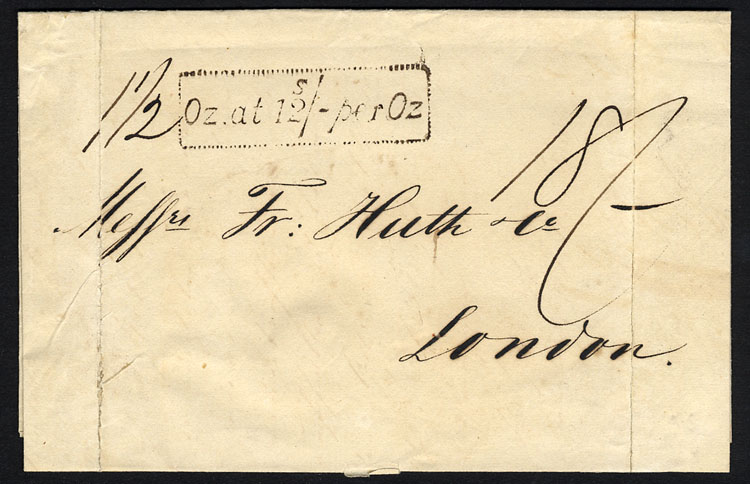 1 1/2 Oz. at 12s/- per Oz
18/-
Messrs Fr: Huth & Co
London.